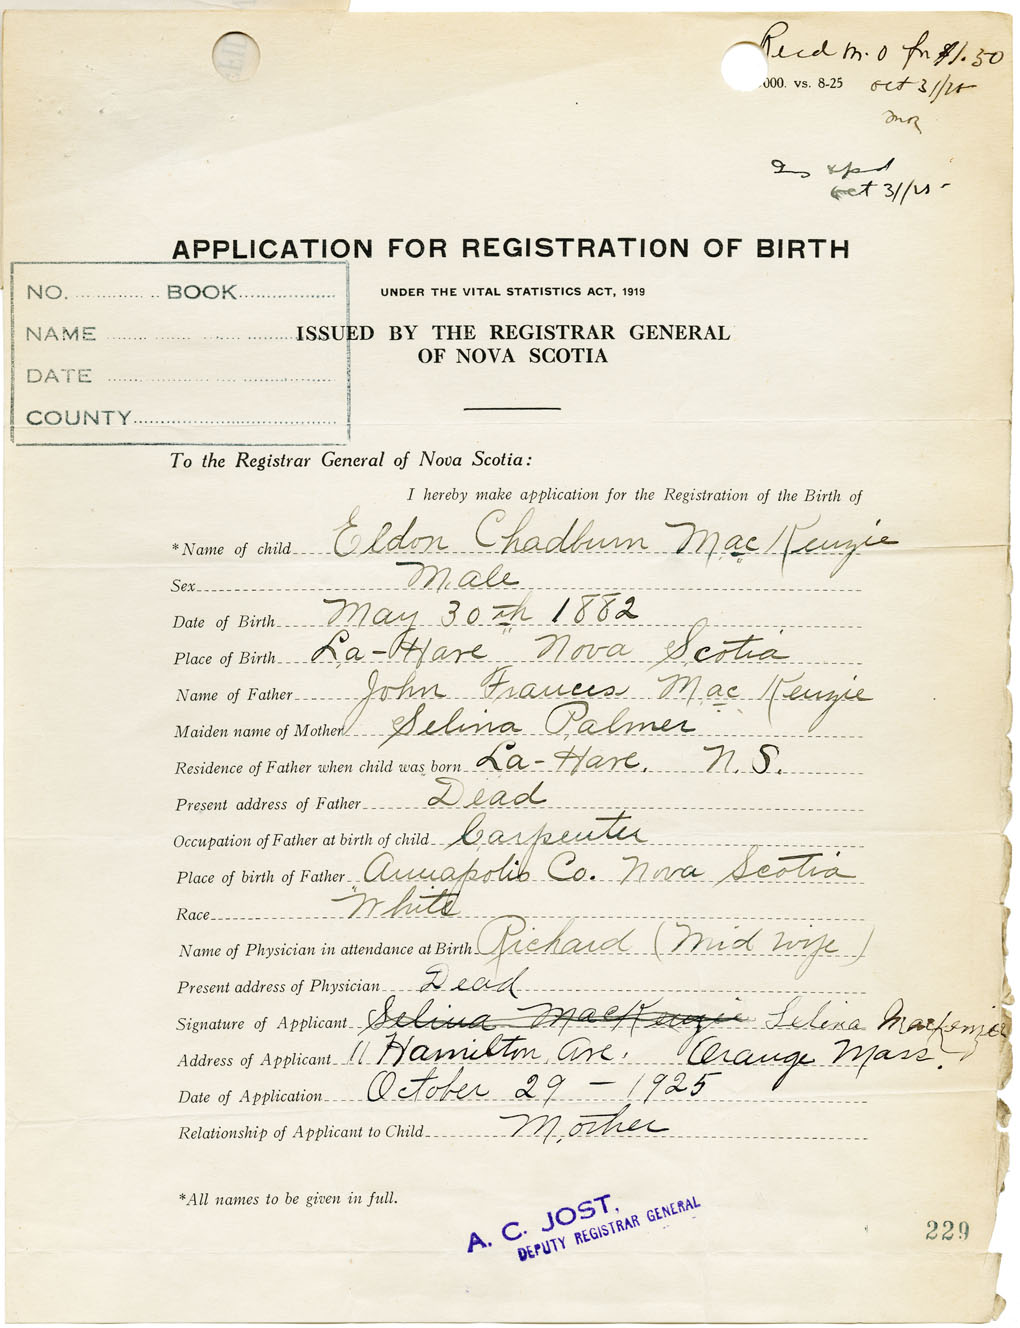 Recd M.O for $1.50
000. vs. 8-25 Oct 31/25
Oct 31/25
APPLICATION FOR REGISTRATION OF BIRTH
UNDER THE VITAL STATISTICS ACT, 1919
ISSUED BY THE REGISTRAR GENERAL
OF NOVA SCOTIA
NO. BOOK
NAME
DATE
COUNTY
To the Registrar General of Nova Scotia:
I hereby make application for the Registration of the Birth of
*Name of child Eldon Chadburn MacKenzie
Sex Male
Date of Birth May 30th 1882
Place of Birth La-Have Nova Scotia
Name of Father John Frances MacKenzie
Maiden name of Mother Selina Palmer
Residence of Father when child was born La-Have. N.S.
Present address of Father Dead
Occupation of Father at birth of child Carpenter
Place of birth of Father Annapolis Co. Nova Scotia
Race White
Name of Physician in attendance at Birth Richard (Mid wife)
Present address of Physician Dead
Signature of Applicant Selina MacKenzie Selina MacKenzie
Address of Applicant 11 Hamilton Ave. Orange Mass.
Date of Application October 29 - 1925
Relationship of Applicant to Child Mother
*All names to be given in full.
A. C. JOST,
DEPUTY REGISTRAR GENERAL
229